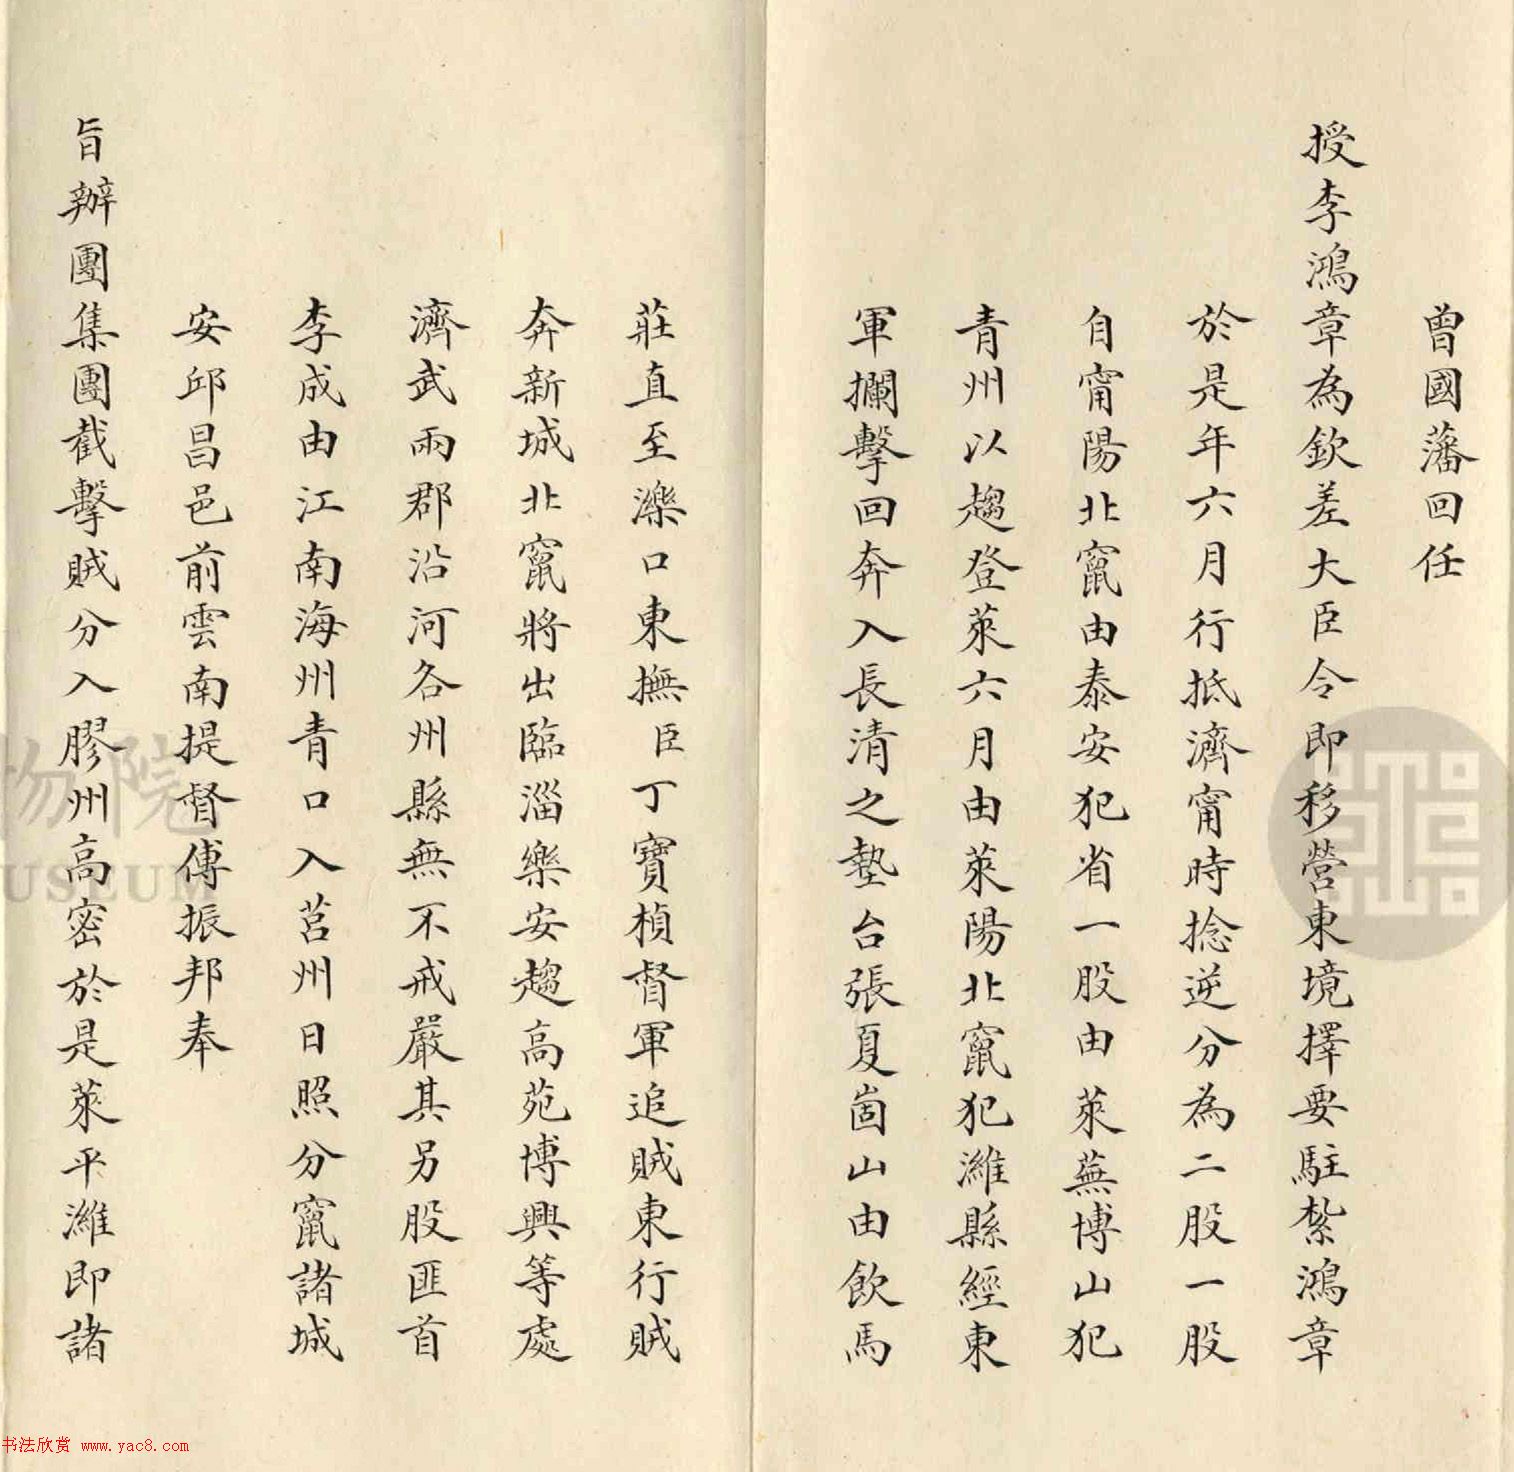 曾國藩回任
授李鴻章為欽差大臣令即移營東境擇要駐紮鴻章
於是年六月行抵濟甯時捻逆分為二股一股
自甯陽北竄由泰安犯省一股由萊蕪博山犯
青州以趨登萊六月由萊陽北竄犯濰縣經東
軍攔擊回奔入長清之墊台張夏崮山由飲馬
莊直至濼口東撫臣丁寶楨督軍追賊東行賊
奔新城北竄將出臨淄樂安趨高苑博興等處
濟武兩郡沿河各州縣無不戒嚴其另股匪首
李成由江南海州青口入莒州日照分竄諸城
安邱昌邑前雲南提督傅振邦奉
旨辦團集團截擊賊分入膠州高密於是萊平濰即諸
物院
USEUM
书法欣赏 www.yac8.com